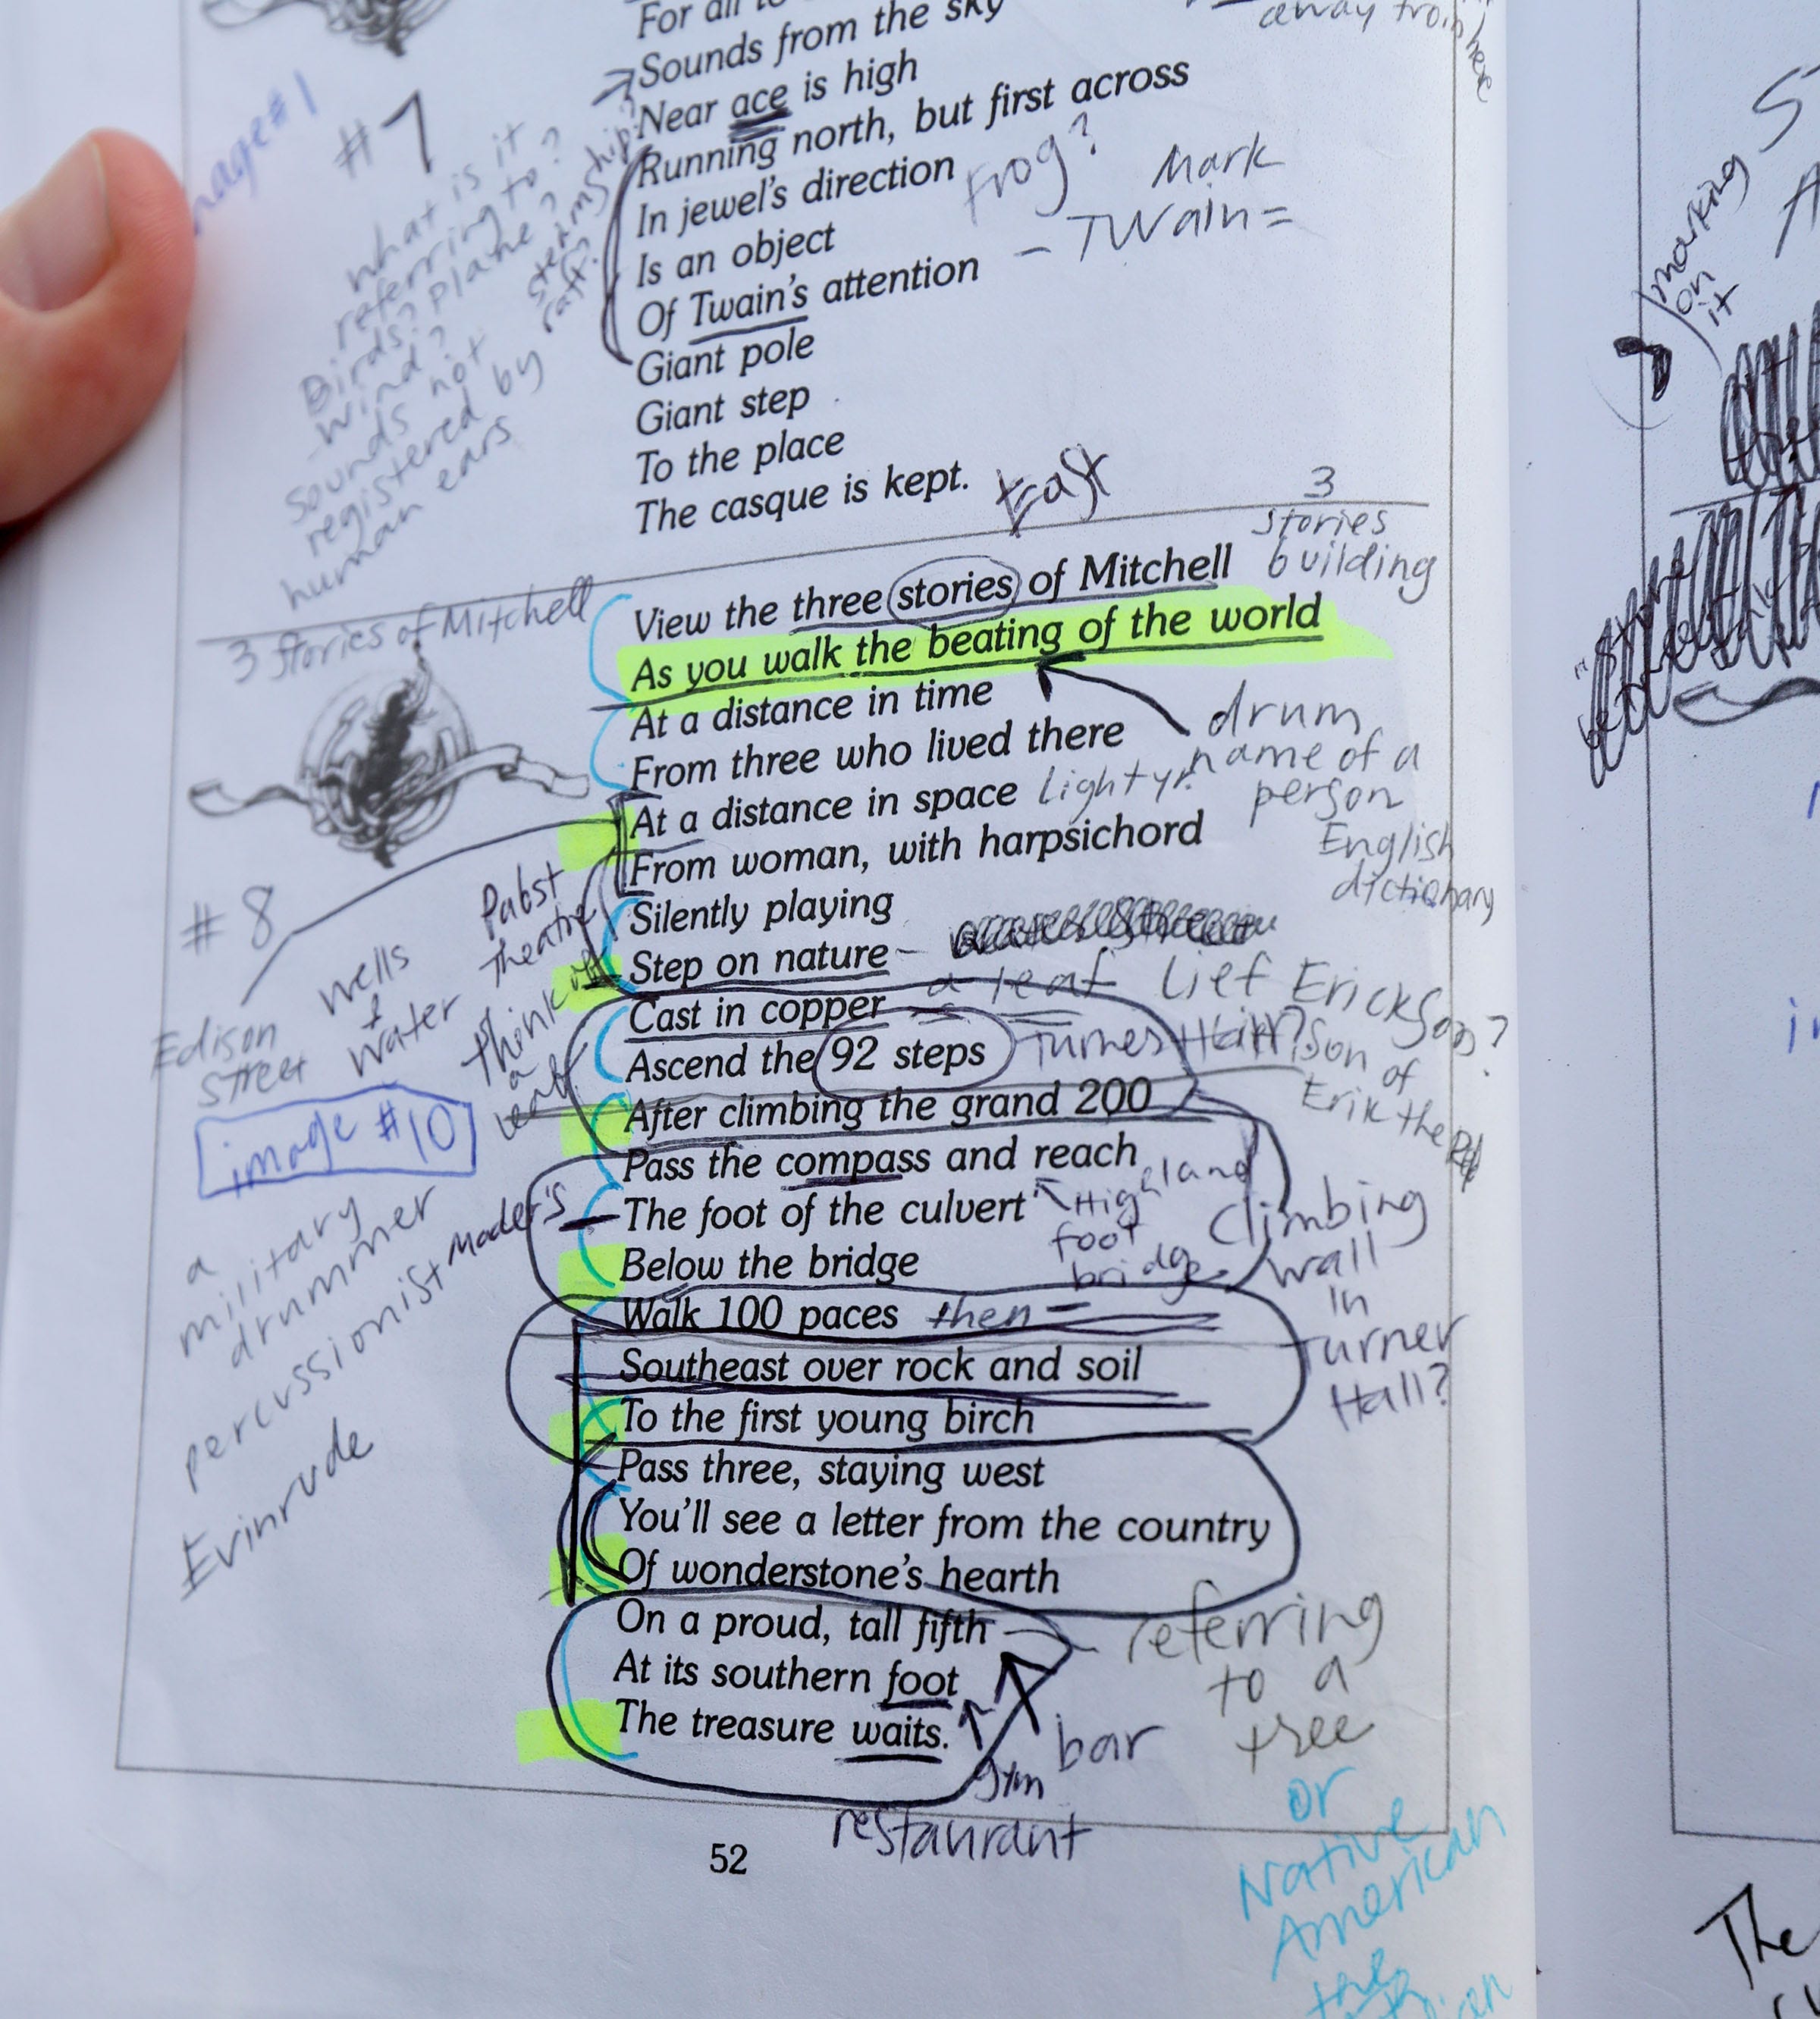 For all
away from here
Sounds from the sky
Near ace is high
Running north, but first across
In jewel's direction
Is an object
Of Twain's attention
Giant pole
Giant step
To the place
The casque is kept.
image #1
#7
what is it
referring to?
Birds? plane?
wind?
sounds not
registered by
human ears
steamship?
raft?
frog?
Mark
- Twain =
East
3
stories
building
View the three stories of Mitchell
As you walk the beating of the world
At a distance in time
From three who lived there
At a distance in space
From woman, with harpsichord
Silently playing
Step on nature
Cast in copper
Ascend the 92 steps
After climbing the grand 200
Pass the compass and reach
The foot of the culvert
Below the bridge
Walk 100 paces
Southeast over rock and soil
To the first young birch
Pass three, staying west
You'll see a letter from the country
Of wonderstone's hearth
On a proud, tall fifth
At its southern foot
The treasure waits.
3 stories of Mitchell
#8
drum
name of a
person
English
dictionary
Light yr.
Pabst
theatre
think of
a
leaf
Wells
+
Water
Edison
Street
image #10
a
military
drummer
percussionist
Mader's
Evinrude
a leaf Lief Erickson?
Son of
Erik the Red
Turner Hall?
Highland
foot
bridge
climbing
wall
in
Turner
Hall?
then
referring
to a
tree
or
Native
American
the
bar
gym
restaurant
52
marking
on
it
The